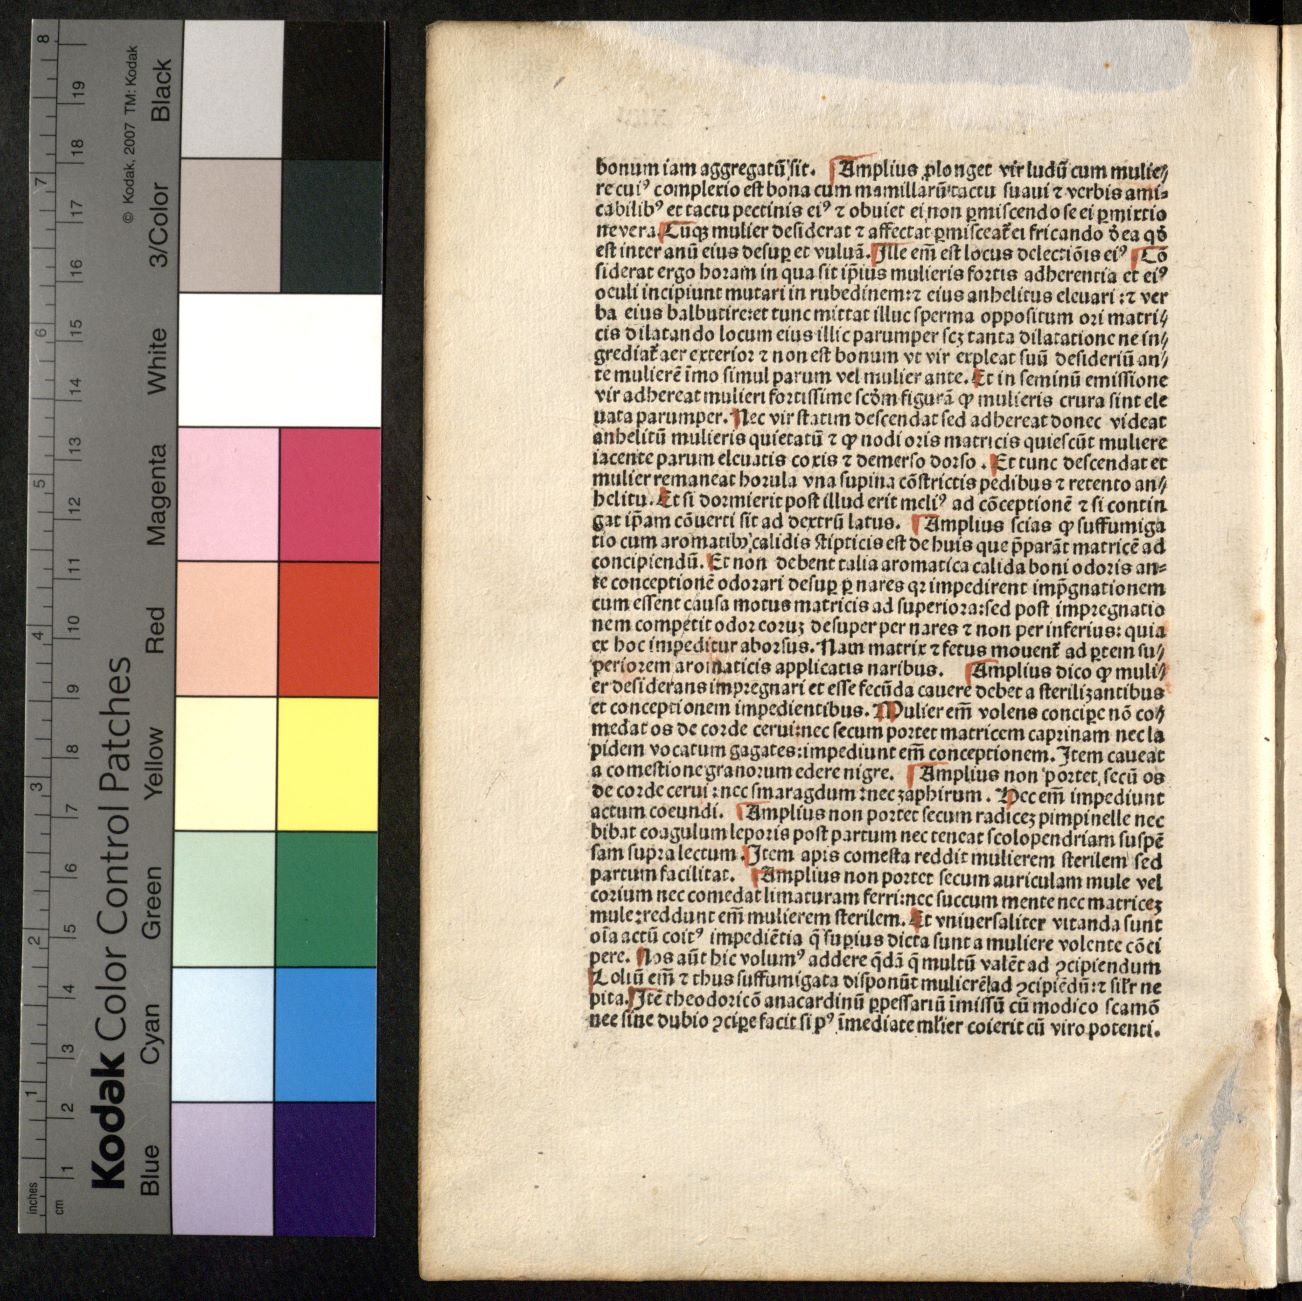 8 19 18 7 17 16 6 15 14 5 13 12 11 4 10 9 3 8 7 2 6 5 4 1 3 2 1
inches cm
Kodak Color Control Patches
© Kodak, 2007 TM: Kodak
Blue Cyan Green Yellow Red Magenta White 3/Color Black
bonum iam aggregatū sit. Amplius ꝓlonget vir ludū cum mulie⸗
re cuiꝰ complexio est bona cum mamillarū tactu suaui ⁊ verbis ami⸗
cabilibꝰ et tactu pectinis eiꝰ ⁊ obuiet ei non ꝑmiscendo se ei ꝑmixtio
ne vera. Cūqꝫ mulier desiderat ⁊ affectat ꝑmisceat̄ ei fricando ꝺ̄ ea qꝺ̄
est inter anū eius desuꝑ et vuluā. Ille em̄ est locus delectiōis eiꝰ Cō
siderat ergo horam in qua sit ip̄ius mulieris fortis adherentia et eiꝰ
oculi incipiunt mutari in rubedinem:⁊ eius anhelitus eleuari :⁊ ver
ba eius balbutire:et tunc mittat illuc sperma oppositum ori matri⸗
cis dilatando locum eius illic parumper scꝫ tanta dilatatione ne in⸗
grediat̄ aer exterior ⁊ non est bonum vt vir expleat suū desideriū an⸗
te mulierē īmo simul parum vel mulier ante. Et in seminū emissione
vir adhereat mulieri fortissime scōm figurā ꝙ mulieris crura sint ele
uata parumper. Nec vir statim descendat sed adhereat donec videat
anhelitū mulieris quietatū ⁊ ꝙ nodi oris matricis quiescūt muliere
iacente parum eleuatis coxis ⁊ demerso dorso . Et tunc descendat et
mulier remaneat horula vna supina cōstrictis pedibus ⁊ retento an⸗
helitu. Et si dormierit post illud erit meliꝰ ad cōceptionē ⁊ si contin
gat ip̄am cōuerti sit ad dextrū latus. Amplius scias ꝙ suffumiga
tio cum aromatibꝫ calidis stipticis est de huis que p̄parāt matricē ad
concipiendū. Et non debent talia aromatica calida boni odoris an⸗
te conceptionē odorari desuꝑ ꝑ nares qꝛ impedirent imp̄gnationem
cum essent causa motus matricis ad superiora:sed post impregnatio
nem competit odor eoruꝫ desuper per nares ⁊ non per inferius: quia
ex hoc impeditur aborsus. Nam matrix ⁊ fetus mouent̄ ad ꝑtem su⸗
periorem aromaticis applicatis naribus. Amplius dico ꝙ muli⸗
er desiderans impregnari et esse fecūda cauere debet a sterilizantibus
et conceptionem impedientibus. Mulier em̄ volens concipe nō co⸗
medat os de corde cerui:nec secum portet matricem caprinam nec la
pidem vocatum gagates:impediunt em̄ conceptionem. Item caueat
a comestione granorum edere nigre. Amplius non portet secū os
de corde cerui : nec smaragdum :nec zaphirum . Hec em̄ impediunt
actum coeundi. Amplius non portet secum radiceꝫ pimpinelle nec
bibat coagulum leporis post partum nec teneat scolopendriam suspē
sam supra lectum . Item apis comesta reddit mulierem sterilem sed
partum facilitat. Amplius non portet secum auriculam mule vel
corium nec comedat limaturam ferri:nec succum mente nec matriceꝫ
mule:reddunt em̄ mulierem sterilem. Et vniuersaliter vitanda sunt
oīa actū coitꝰ impediētia q̄ suꝑius dicta sunt a muliere volente cōci
pere. Nos aūt hic volumꝰ addere q̄dā q̄ multū valēt ad ꝯcipiendum
Loliū em̄ ⁊ thus suffumigata disponūt mulierē ad ꝯcipiēdū:⁊ sil̄r ne
pita. Itē theodoricō anacardinū ꝑ pessariū īmissū cū modico scamō
nee sine dubio ꝯciꝑe facit si pꝰ īmediate ml̄ier coierit cū viro potenti.